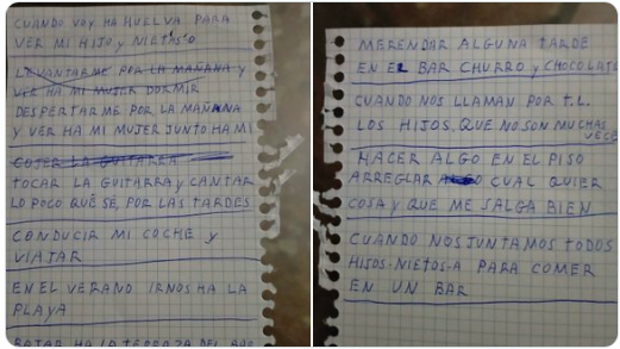 CUANDO VOY HA HUELVA PARA
VER MI HIJO y NIETAS'O
LEVANTARME POR LA MAÑANA y
VER HA MI MUJER DORMIR
DESPERTARME POR LA MAÑANA
y VER HA MI MUJER JUNTO HA MI
COJER LA GUITARRA
TOCAR LA GUITARRA y CANTAR
LO POCO QUÉ SÉ, POR LAS TARDES
CONDUCIR MI COCHE y
VIAJAR
EN EL VERANO IRNOS HA LA
PLAYA
HA LA TERRAZA DEL
MERENDAR ALGUNA TARDE
EN EL BAR CHURRO y CHOCOLATE
CUANDO NOS LLAMAN POR T.L.
LOS HIJOS, QUE NO SON MUCHAS
VECE
HACER ALGO EN EL PISO
ARREGLAR ALGO CUAL QUIER
COSA y QUE ME SALGA BIEN
CUANDO NOS JUNTAMOS TODOS
HIJOS-NIETOS-A PARA COMER
EN UN BAR